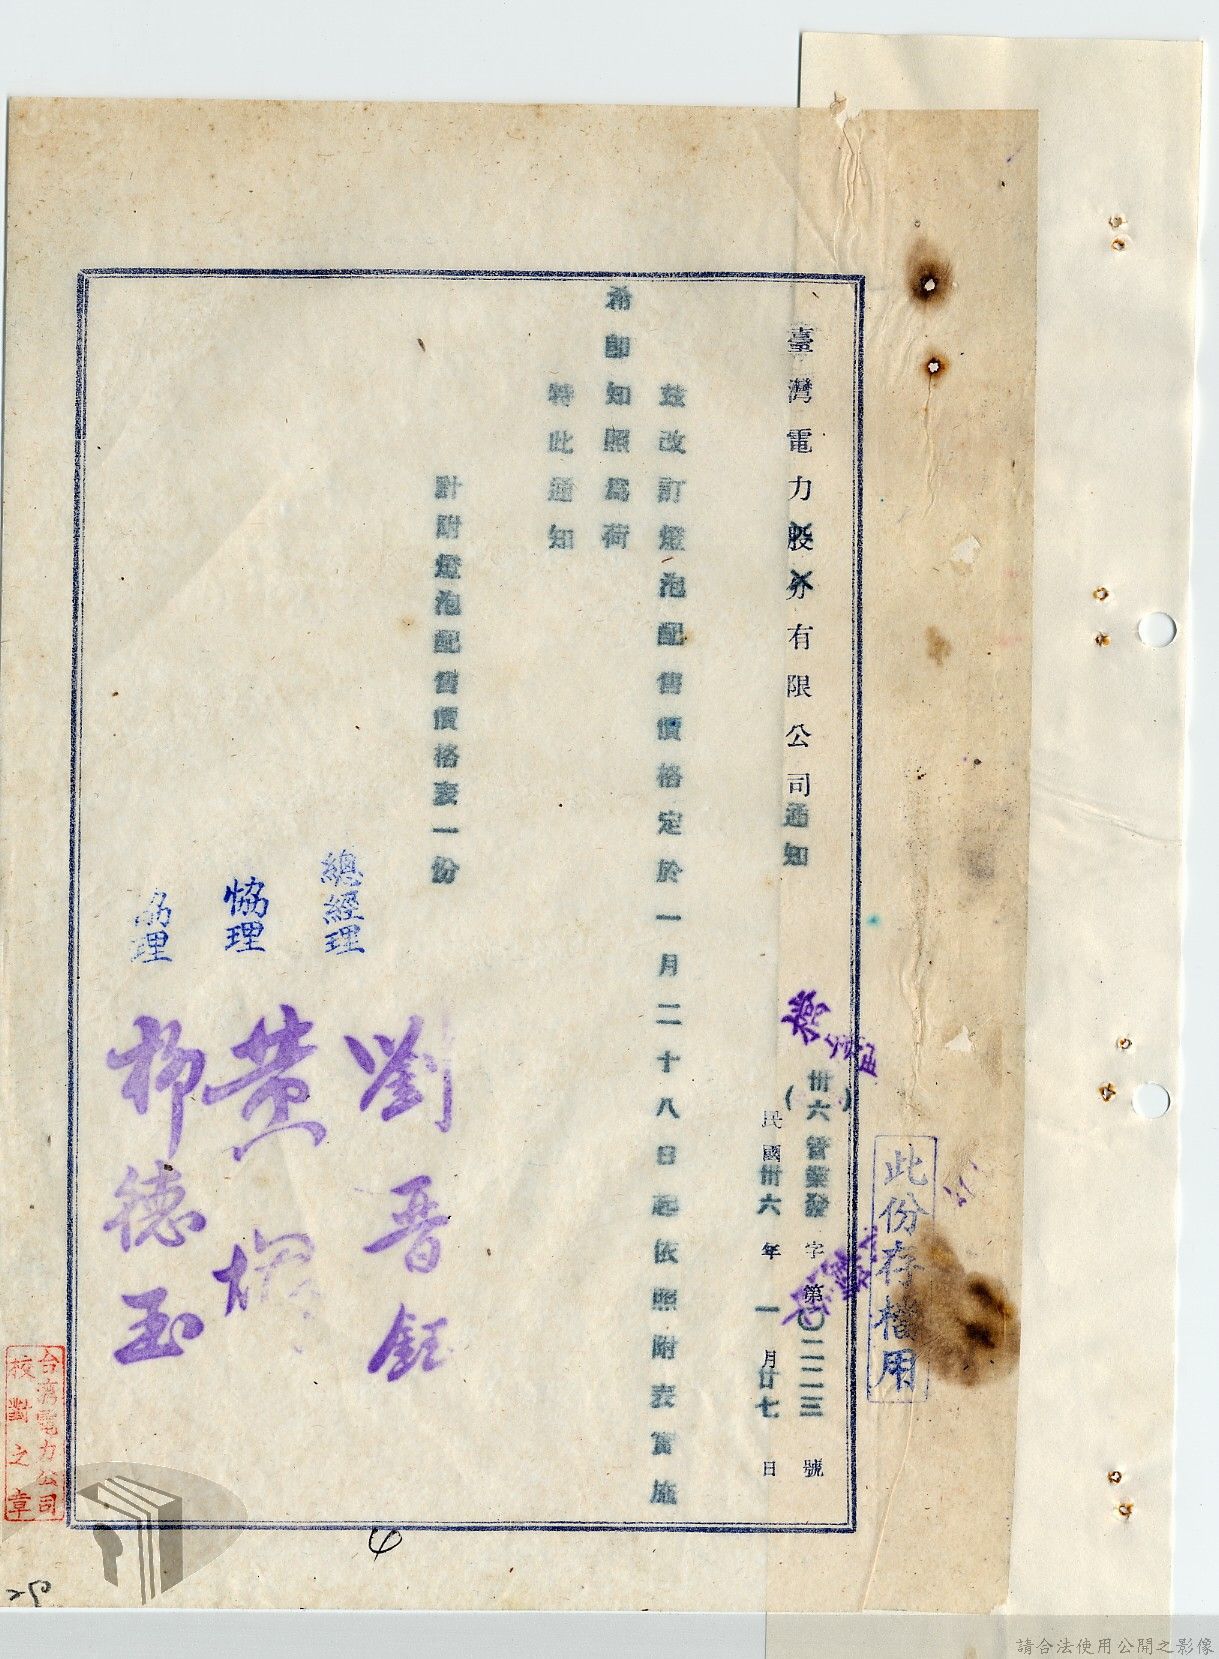 臺灣電力股份有限公司通知
(卅六管業發字第〇二二三號)
民國卅六年一月廿七日
茲改訂燈泡配售價格定於一月二十八日起依照附表實施
希即知照爲荷
特此通知
計附燈泡配售價格表一份
總經理 劉晋鈺
協理 黄煇
協理 柳德玉
此份存檔用
台灣電力公司
校對之章
4
請合法使用公開之影像